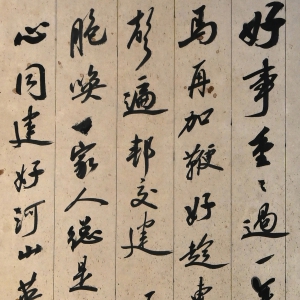 好事重々過一年
馬再加鞭好趁東
遍邦交建
胞喚一家人總是
心同建好河山